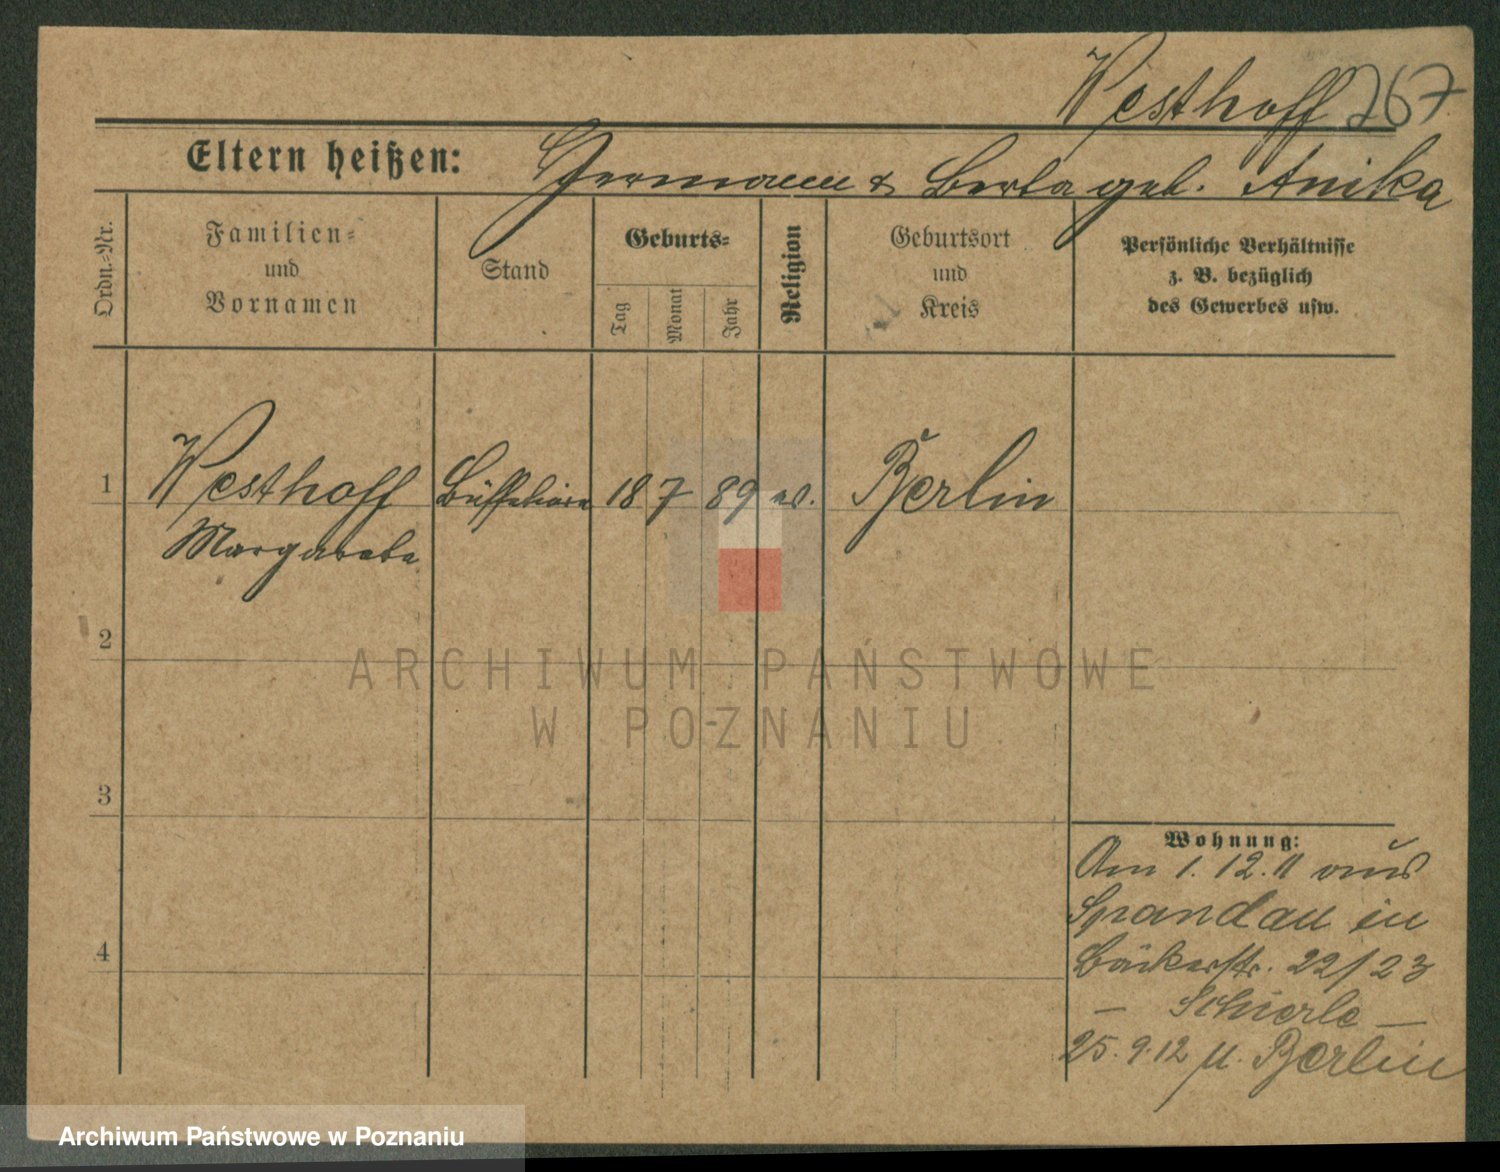 Westhoff 767
Eltern heißen: Hermann & Berta geb. Anika
Ordn.-Nr.
Familien-
und
Vornamen
Stand
Geburts-
Tag
Monat
Jahr
Religion
Geburtsort
und
Kreis
Persönliche Verhältnisse
z. B. bezüglich
des Gewerbes usw.
1 Westhoff 18 7 89 ev. Berlin
Margarete
2
3
4
Wohnung:
Am 1. 12. 11 aus
Spandau in
Bäckerstr. 22/23
– Schierle –
25. 9. 12 n. Berlin
ARCHIWUM PAŃSTWOWE
W POZNANIU
Archiwum Państwowe w Poznaniu